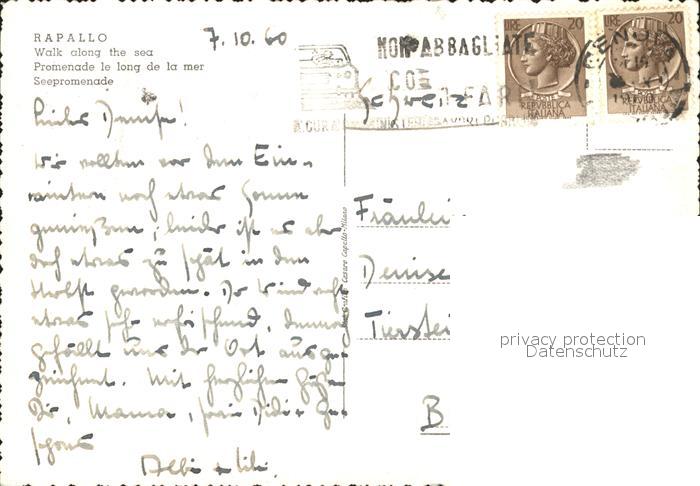 RAPALLO
Walk along the sea
Promenade le long de la mer
Seepromenade
7.10.60
NON ABBAGLIATE
CO I FARI
LIRE 20
POSTE
REPVBBLICA
ITALIANA
LIRE 20
POSTE
REPVBBLICA
ITALIANA
GENOVA
Schweiz
Liebe Denise!
Wir wollten vor dem Ein-
wintern noch etwas Sonne
geniessen, leider ist es aber
doch etwas zu spät in den
Herbst geworden. Der Wind
etwas sehr erfrischend, dennoch
gefällt uns der Ort ausge-
zeichnet. Mit herzlichen Grüssen
Dir, Mama,
Cesare Capello - Milano
Fräulei
Denise
Tierstei
B
privacy protection
Datenschutz